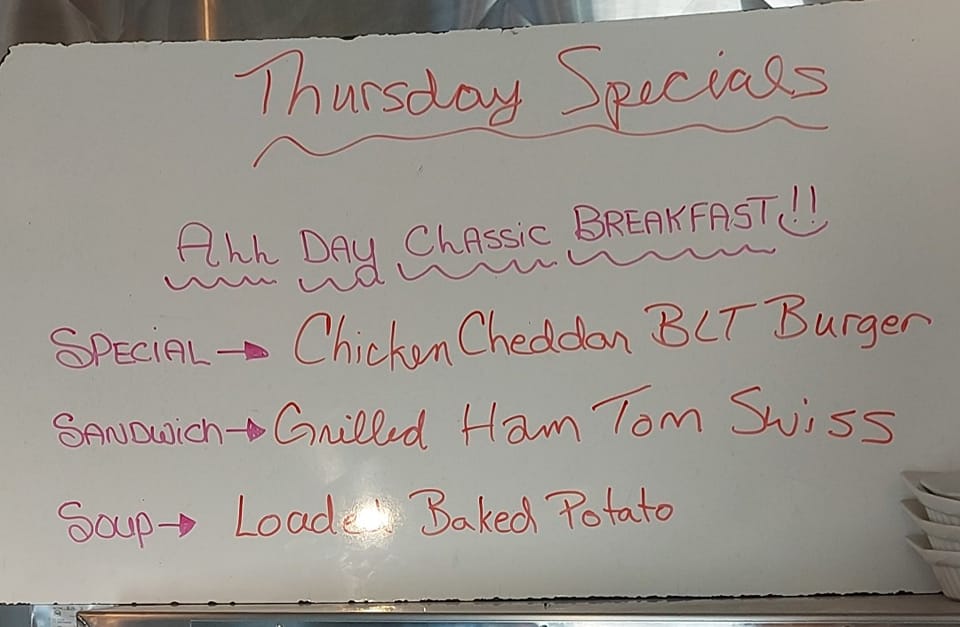 Thursday Specials
All DAY ClASSIC BREAKFAST!!
SPECIAL → Chicken Cheddar BLT Burger
SANDwich → Grilled Ham Tom Swiss
Soup → Loaded Baked Potato